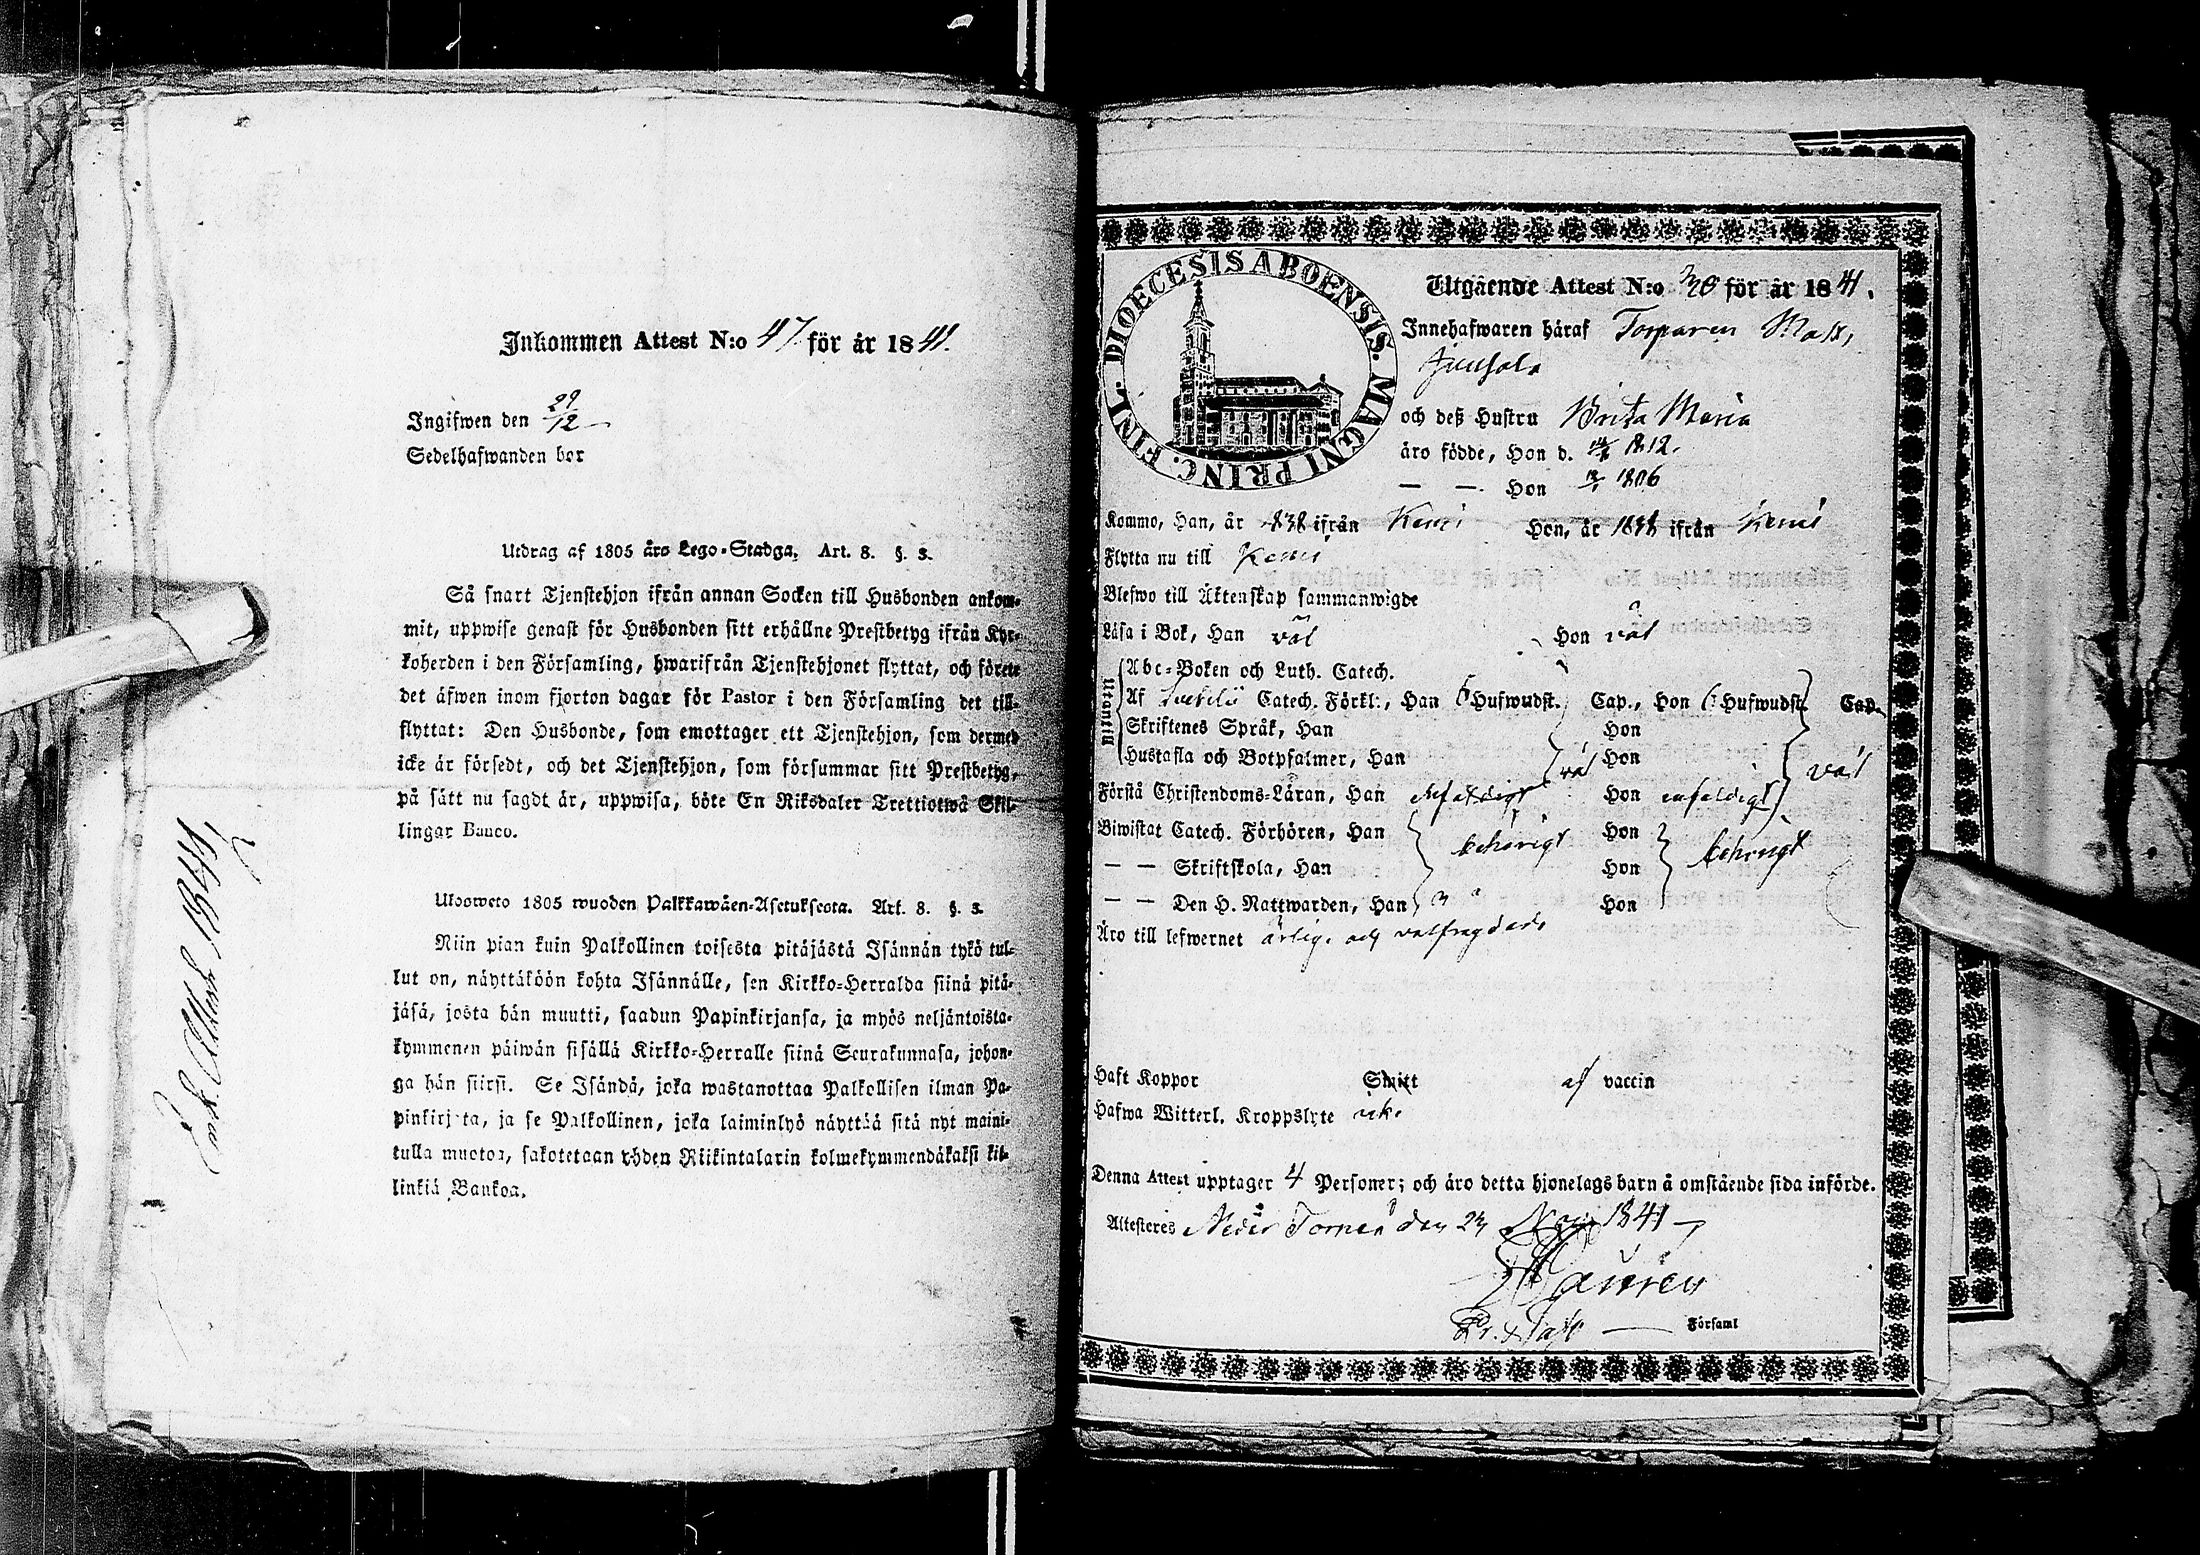 Inkommen Attest N:o 47. för år 1841.
Ingifwen den 29/12
Sedelhafwanden bor
Utdrag af 1805 års Lego-Stadga, Art. 8. §. 3.
Så snart Tjenstehjon ifrån annan Socken till Husbonden ankom-
mit, uppwise genast för Husbonden sitt erhållne Prestbetyg ifrån Kyr-
koherden i den Församling, hwarifrån Tjenstehjonet flyttat, och förete
det äfwen inom fjorton dagar för Pastor i den Församling det till-
flyttat: Den Husbonde, som emottager ett Tjenstehjon, som dermed
icke är försedt, och det Tjenstehjon, som försummar sitt Prestbetyg,
på sätt nu sagdt är, uppwisa, böte En Riksdaler Trettiotwå Skil-
lingar Banco.
Ulosweto 1805 wuoden Palkkawäen-Asetuksesta. Art. 8. §. 3.
Niin pian kuin Palkollinen toisesta pitäjästä Isännän tykö tul-
lut on, näyttäköön kohta Isännälle, sen Kirkko-Herralda siinä pitä-
jäsä, josta hän muutti, saadun Papinkirjansa, ja myös neljäntoista-
kymmenen päiwän sisällä Kirkko-Herralle siinä Seurakunnasa, johon-
ga hän siirsi. Se Isändä, joka wastanottaa Palkollisen ilman Pa-
pinkirjata, ja se Palkollinen, joka laiminlyö näyttää sitä nyt maini-
tulla muotoa, sakotetaan yhden Riikintalarin kolmekymmendäkaksi kil-
linkiä Bankoa.
DIOECESIS ABOENSIS. MAGNI PRINC. FINL.
Utgående Attest N:o 30 för år 1841.
Innehafwaren häraf Torparen Matts
Junsala
och deß Hustru Brita Maria
äro födde, Han d. 1812.
— — Hon 1806
Kommo, Han, år 1838 ifrån Kemi Hon, år 1838 ifrån Kemi
Flytta nu till Kemi
Blefwo till Äktenskap sammanwigde
Läsa i Bok, Han väl Hon väl
Utantill
Abc-Boken och Luth. Catech.
Af Catech. Förkl:, Han 6 Hufwudst. Cap., Hon 6 Hufwudst. Cap.
Skriftenes Språk, Han Hon
Hustafla och Botpsalmer, Han väl Hon väl
Förstå Christendoms-Läran, Han enfaldigt Hon enfaldigt
Biwistat Catech. Förhören, Han behörigt Hon behörigt
— — Skriftskola, Han Hon
— — Den H. Nattwarden, Han Hon
Äro till lefwernet ärlige och välfrägdade
Haft Koppor Smitt af vaccin
Hafwa Witterl. Kroppslyte icke
Denna Attest upptager 4 Personer; och äro detta hjonelags barn å omstående sida införde.
Attesteres Neder Torneå den 23 Nov. 1841
Församl